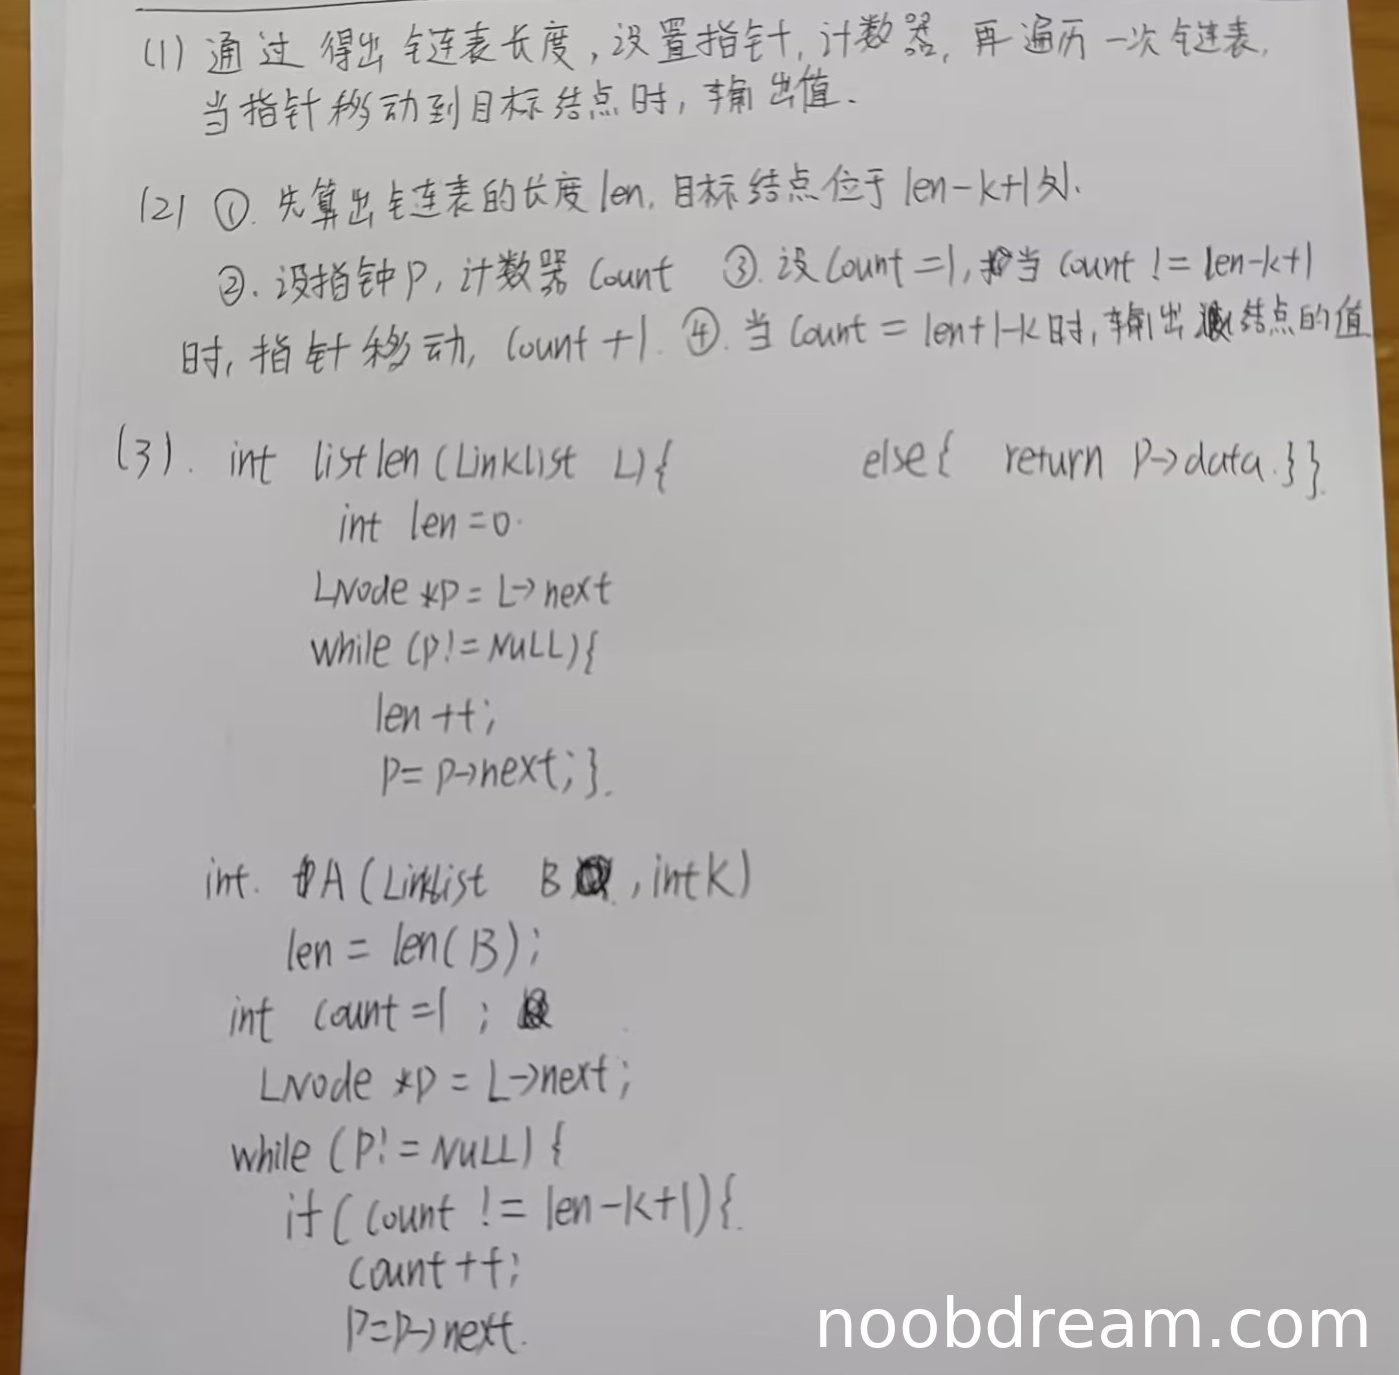 (1) 通过得出链表长度,设置指针,计数器,再遍历一次链表,
当指针移动到目标结点时,输出值.
(2) ①. 先算出链表的长度len, 目标结点位于len-k+1处.
②. 设指针p, 计数器Count ③. 设Count=1, 当Count != len-k+1
时, 指针移动, Count+1. ④. 当Count = len+1-k时, 输出结点的值
(3). int listlen(Linklist L){
int len=0.
LNode *p = L->next
while (p!=NULL){
len++;
p= p->next;}.
int. A(Linklist B, int k)
len = len(B);
int count=1 ;
LNode *p = L->next;
while (p!=NULL) {
if( count != len-k+1){.
count++;
p=p->next.
else{ return p->data.}}.
noobdream.com